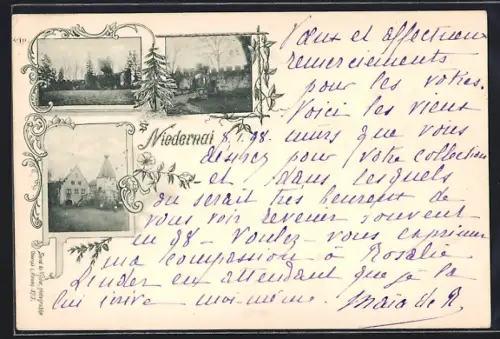 Vœux et affectueux
remerciements
pour les vôtres.
Voici les vieux
Niedernai 8.1.98. murs que vous
désirez pour votre collection
et dans lesquels
on serait très heureux de
vous voir revenir souvent
en 98 - Voulez-vous exprimer
ma compassion à Rosalie
Linder en attendant que je la
lui écrive moi-même.